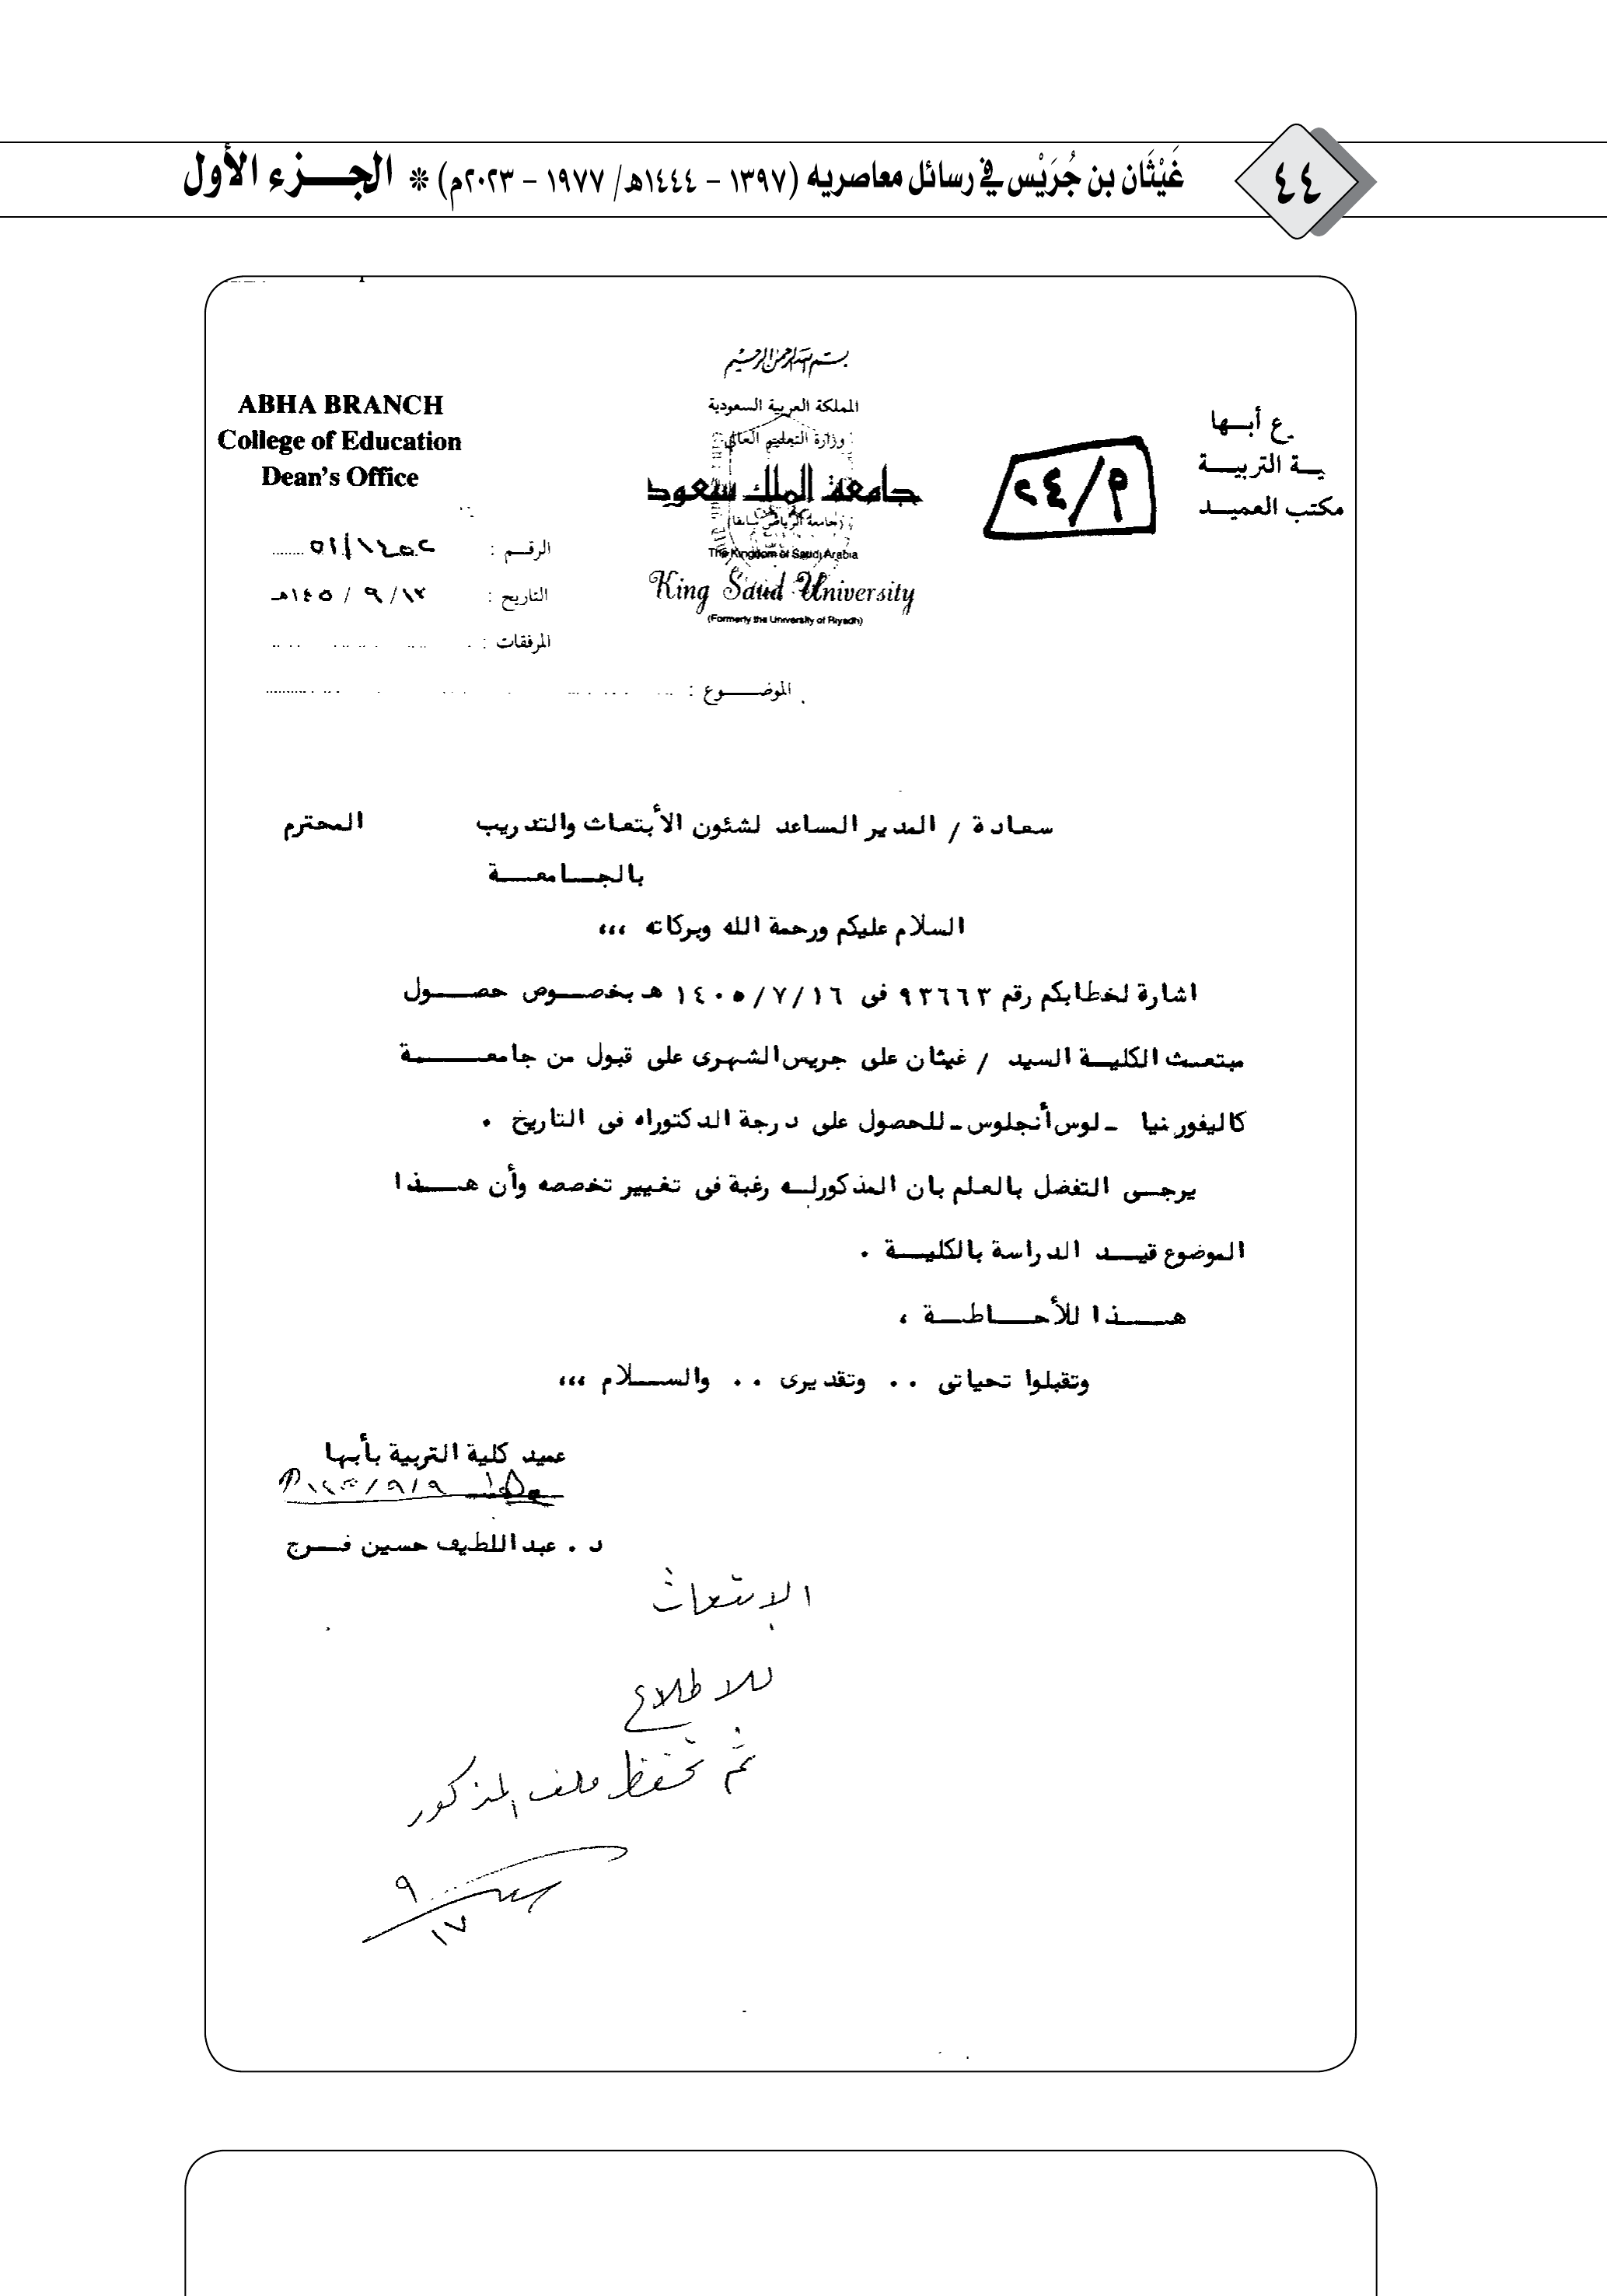 ٤٤
غَيْثَان بن جُرَيْس في رسائل معاصريه (١٣٩٧ - ١٤٤٤هـ/ ١٩٧٧ - ٢٠٢٣م) * الجـــزء الأول
بسم الله الرحمن الرحيم
المملكة العربية السعودية
وزارة التعليم العالي
جامعة الملك سعود
(جامعة الرياض سابقا)
The Kingdom of Saudi Arabia
King Saud University
(Formerly the University of Riyadh)
ع أبــها
ـيـــة التربيـــة
مكتب العميــد
م/٢٤
ABHA BRANCH
College of Education
Dean's Office
الرقــم :
التاريخ : ١٢/ ٩ / ١٤٠٥هـ
المرفقات :
الموضـــوع :
سعادة / المدير المساعد لشئون الأبتعاث والتدريب المحترم
بالجـــامعـــة
السلام عليكم ورحمة الله وبركاته ،،،
اشارة لخطابكم رقم ٩٣٦٦٣ فى ١٤٠٥/٧/١٦ هـ بخصــوص حصـــول
مبتعــث الكليــة السيد / غيثان على جريس الشهرى على قبول من جامعـــــة
كاليفورنيا - لوس أنجلوس - للحصول على درجة الدكتوراه فى التاريخ .
يرجــى التفضل بالعلم بان المذكورلــه رغبة فى تغيير تخصصه وأن هـــذا
الموضوع قيــد الدراسة بالكليـــة .
هــــذا للأحـــاطـــة ،
وتقبلوا تحياتى .. وتقديرى .. والســـلام ،،،
عميد كلية التربية بأبها
١٤٠٥/٩/٩
د . عبداللطيف حسين فــرج
الابتعاث
للاطلاع
ثم تحفظ ملف المذكور
٩
١٧